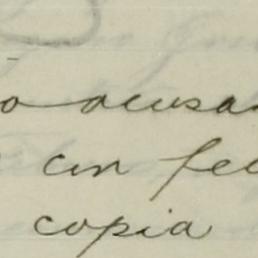 o acusa
con fel
copia